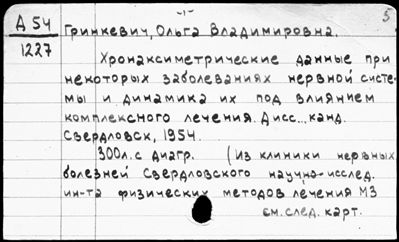 -1-
5
Д 54
1227
Гринкевич, Ольга Владимировна.
Хронаксиметрические данные при
некоторых заболеваниях нервной систе-
мы и динамика их под влиянием
комплексного лечения. Дисс... канд.
Свердловск, 1954.
300л. с диагр. (Из клиники нервных
болезней Свердловского научно-исслед.
ин-та физических методов лечения МЗ
см. след. карт.